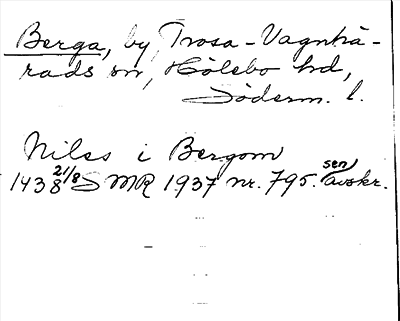 Berga, by, Trosa-Vagnhä-
rads sn, Hölebo hd,
Söderm. l.
Niles i Bergom
1438 21/8 S MR 1937 nr. 795. sen avskr.